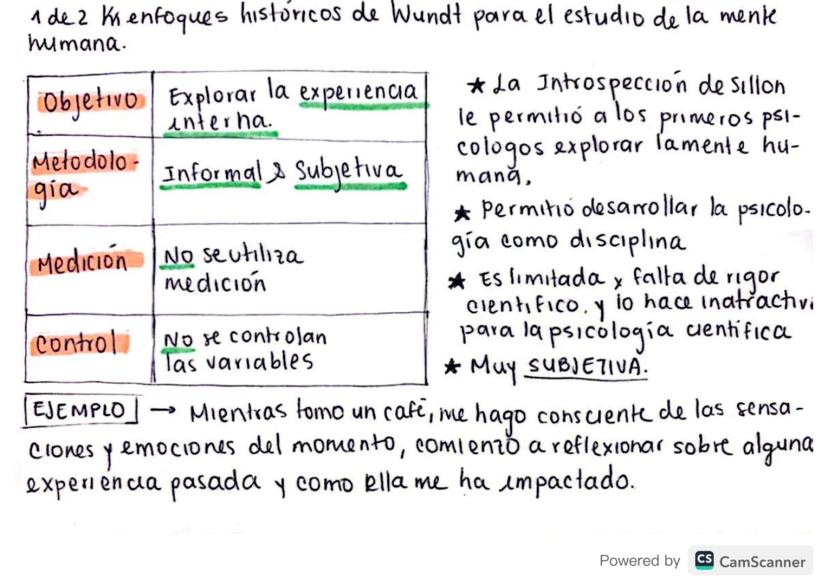 1 de 2 enfoques históricos de Wundt para el estudio de la mente
humana.
Objetivo
Explorar la experiencia
interna.
Metodolo-
gía
Informal & Subjetiva
Medición
No se utiliza
medición
Control
No se controlan
las variables
★ La Introspección de Sillon
le permitió a los primeros psi-
cologos explorar la mente hu-
mana,
★ Permitió desarrollar la psicolo-
gía como disciplina
★ Es limitada x falta de rigor
científico, y lo hace inatractivi
para la psicología científica
★ Muy SUBJETIVA.
EJEMPLO → Mientras tomo un café, me hago consciente de las sensa-
ciones y emociones del momento, comienzo a reflexionar sobre alguna
experiencia pasada y como ella me ha impactado.
Powered by CS CamScanner